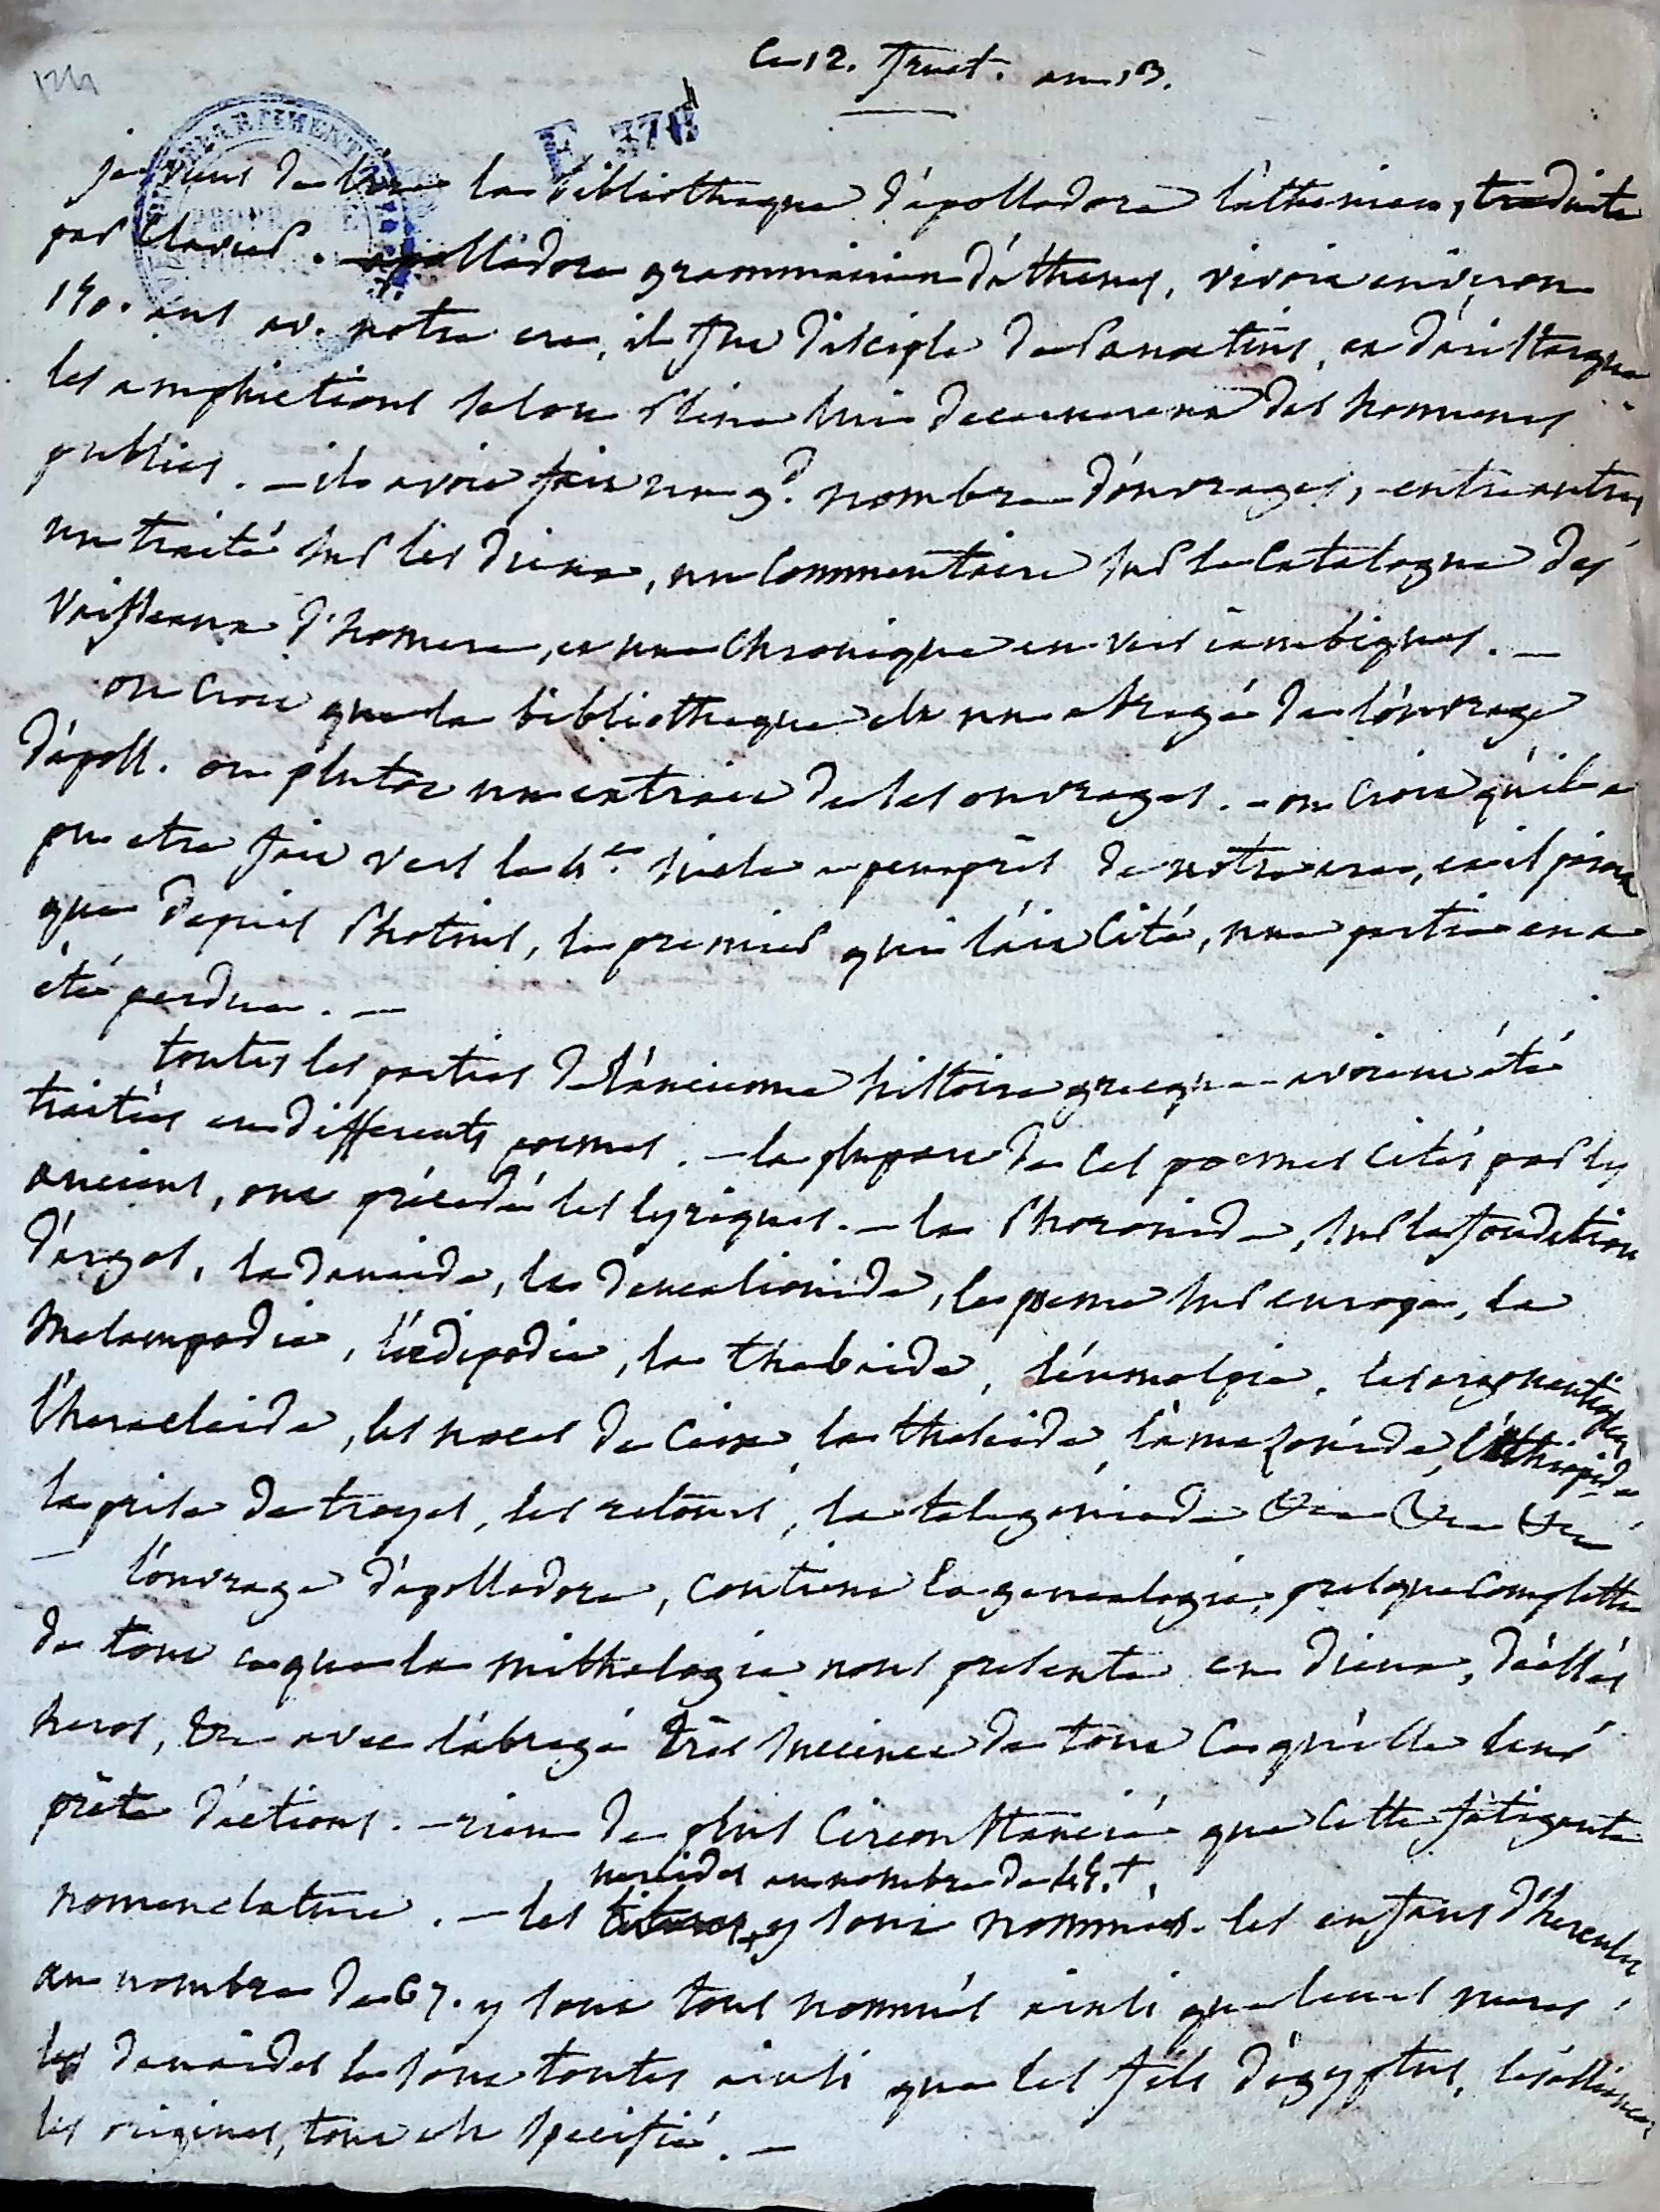 124
Ce 12. fruct. an 13.
E 378
je viens de lire la bibliotheque d'apollodore l'athenien, traduite
par Clavier. – apollodore grammairien d'athenes, vivoit environ
150. ans av. notre ere, il fut disciple de Panætius, et d'aristarque
les amphictions selon Pline lui decernerent des honneurs
publics. – il avoit fait un gd. nombre d'ouvrages, entre autres
un traité sur les dieux, un Commentaire sur le Catalogue des
vaisseaux d'homere, et une Chronique en vers iambiques. –
on croit que la bibliotheque est un abregé de l'ouvrage
d'apoll. ou plutôt un extrait de ses ouvrages. – on croit qu'il a
pu etre fait vers le 4e. siecle a peu près de notre ere, et il paroit
que depuis Photius, le premier qui l'ait Cité, une partie en a
été perdue. –
toutes les parties de l'ancienne histoire grecque avoient été
traitées en differents poemes. – la plupart de ces poemes cités par les
anciens, ont précédé les lyriques. – la Phoronide, sur la fondation
d'argos, la danaide, la deucalionide, le poeme sur europe, la
Melampodie, l'œdipodie, la thebaide, l'eumolpie, les argonautiques
l'heracleide, les noces de Ceix, la theseide, l'amazonide, l'ethiopide
la prise de troyes, les retours, la telegoniade &c &c &c
– l'ouvrage d'apollodore, contient la genealogie, presque complette
de tout ce que la mithologie nous presente en dieux, déesses
heros, &c avec l'abregé très succinct de tout ce qu'elle leur
prête d'actions. – rien de plus Circonstancié que cette fatigante
nereides au nombre de 45.+
nomenclature. – les + y sont nommées. les enfans d'hercule
au nombre de 67. y sont tous nommés ainsi que leurs meres
les danaides le sont toutes ainsi que les fils d'egyptus, les alliances
les origines, tout est specifié. –